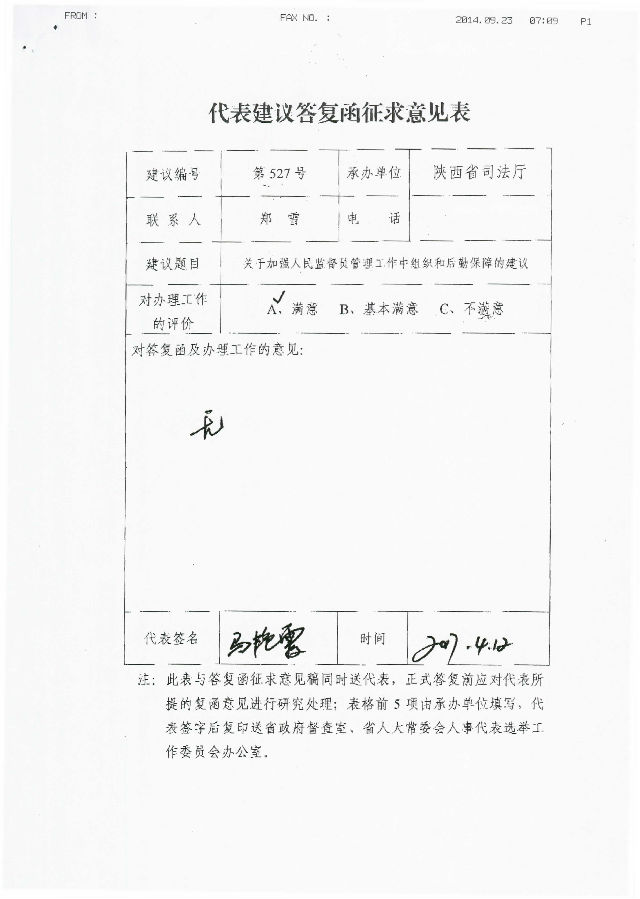 FROM : FAX NO. : 2014.09.23 07:09 P1
代表建议答复函征求意见表
建议编号 第 527 号 承办单位 陕西省司法厅
联系人 郑雪 电话
建议题目 关于加强人民监督员管理工作中组织和后勤保障的建议
对办理工作
的评价
A、满意 B、基本满意 C、不满意
对答复函及办理工作的意见：
无
代表签名 马艳雯 时间 2017.4.12
注：此表与答复函征求意见稿同时送代表，正式答复前应对代表所
提的复函意见进行研究处理；表格前 5 项由承办单位填写，代
表签字后复印送省政府督查室、省人大常委会人事代表选举工
作委员会办公室。